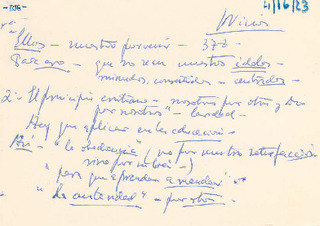 -705-
4/16/23
Niños
Ellos - nuestro porvenir - 373 -
Para eso - que no sean nuestros ídolos -
mimados, consentidos -
2º- El principio cristiano - nosotros por otro y Dios
por nosotros" - caridad -
Hay que aplicar en la educación -
Así - "la obediencia" (no por nuestra satisfacción
sino por su bien -)
"para que aprendan a mandar" -
"La austeridad" - por otros -